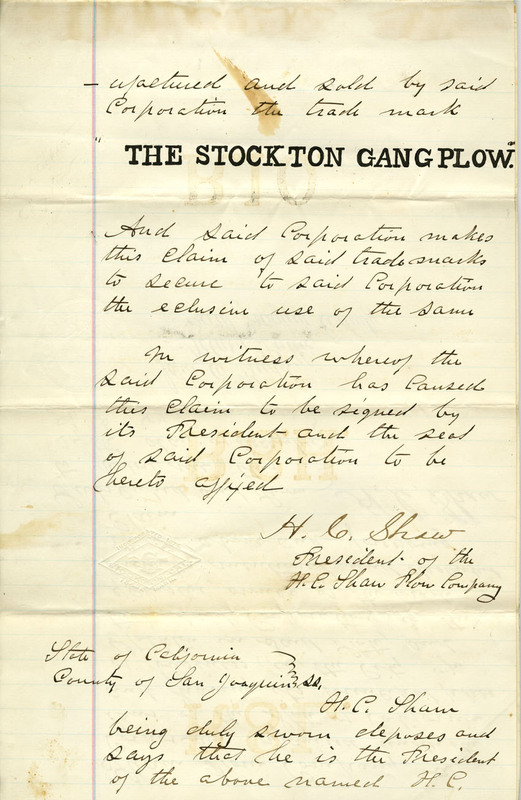 - ufactured and sold by said
Corporation the trade mark
"THE STOCKTON GANG PLOW."
And said Corporation makes
this claim of said trade marks
to secure to said Corporation
the eclusive use of the same
In witness whereof the
said Corporation has caused
this claim to be signed by
its President and the seal
of said Corporation to be
hereto affixed
H. C. Shaw
President of the
H.C. Shaw Plow Company
State of California
County of San Joaquin } ss.
H. C. Shaw
being duly sworn deposes and
says that he is the President
of the above named H. C.